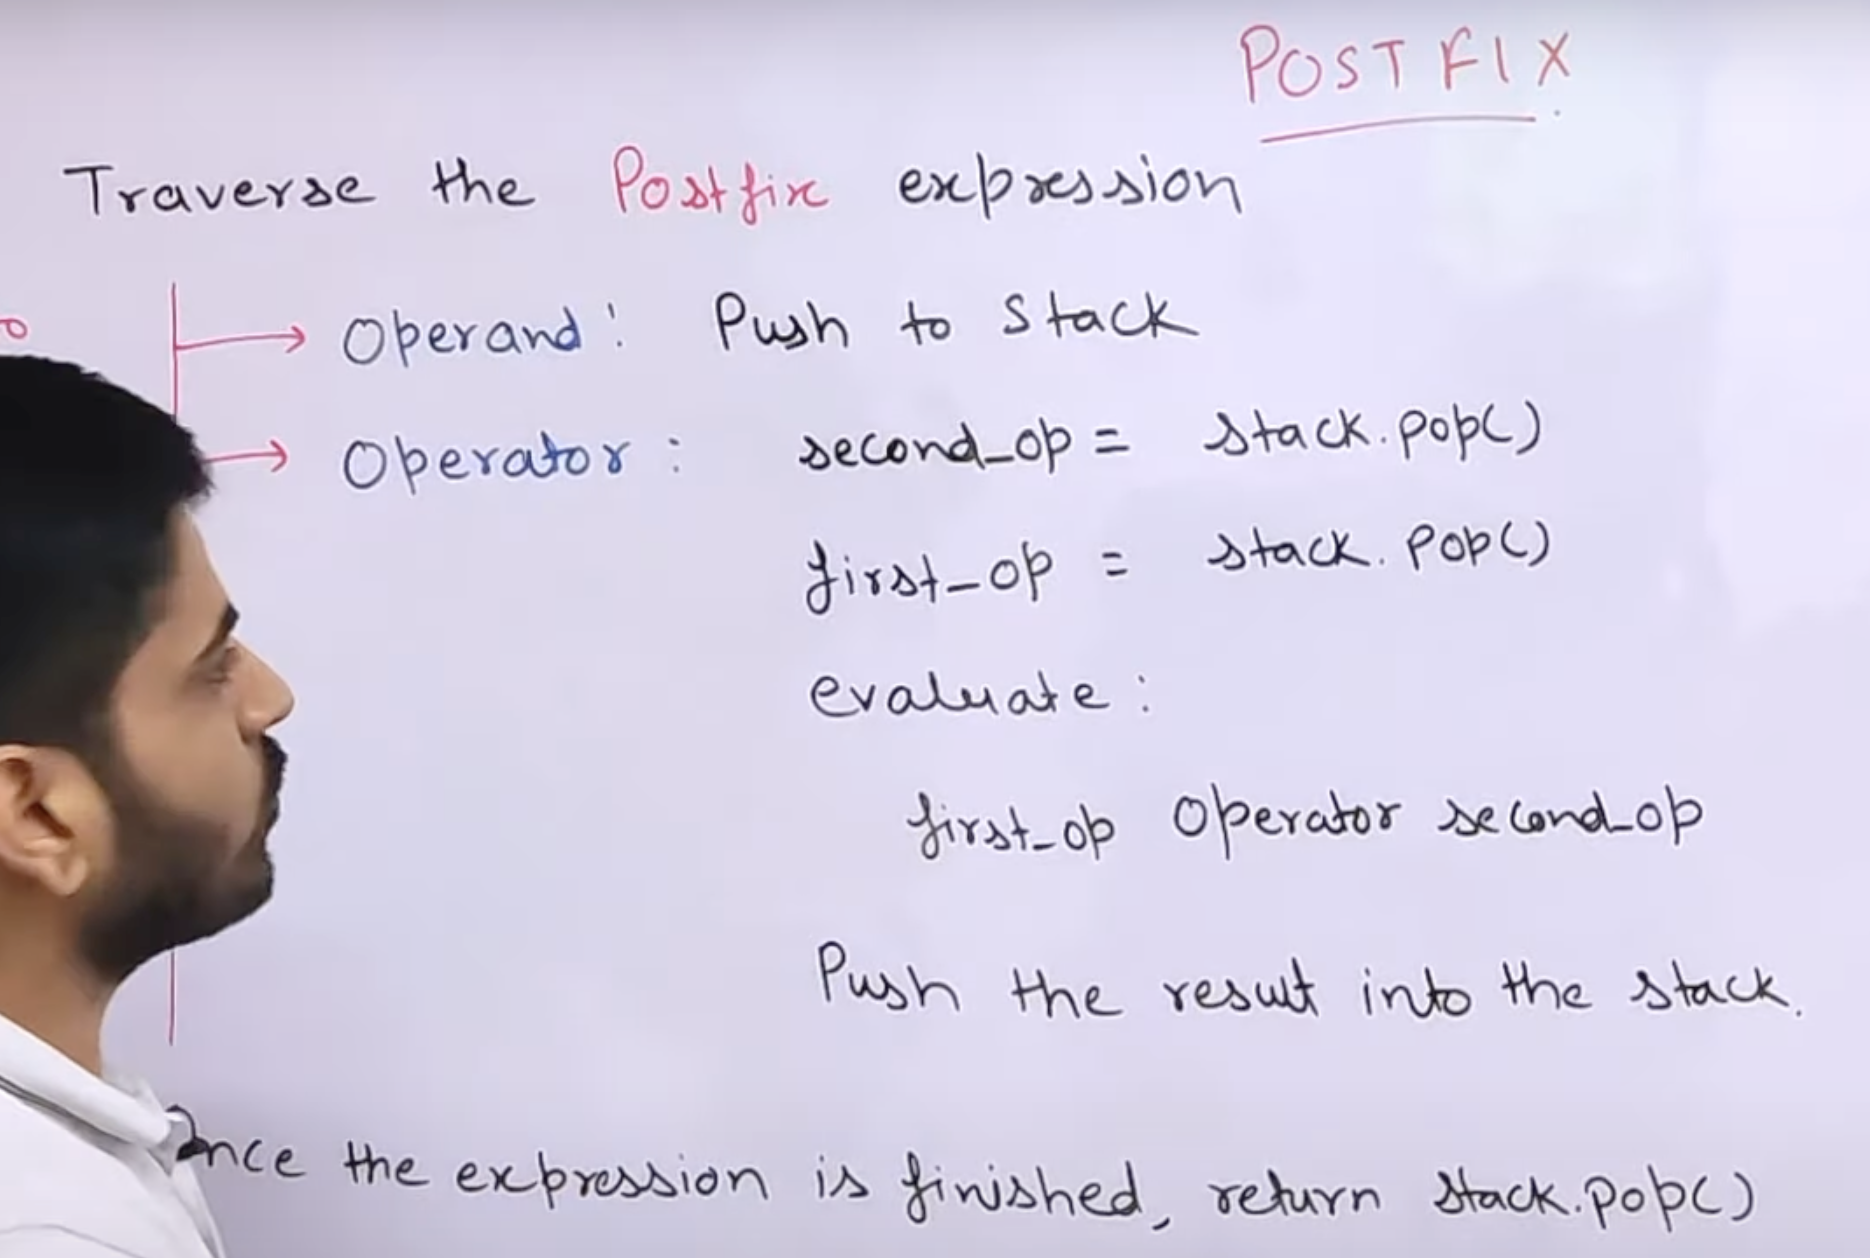 POSTFIX
Traverse the Postfix expression
Operand: Push to stack
Operator: second_op = stack.pop()
first_op = stack.pop()
evaluate:
first_op operator second_op
Push the result into the stack.
Once the expression is finished, return stack.pop()